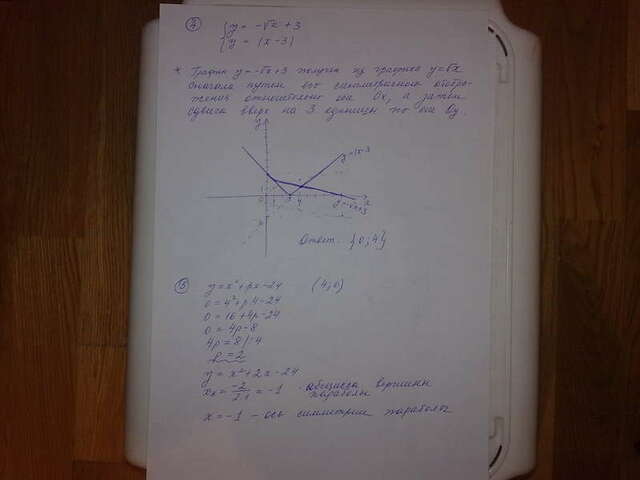 ④ { y = -√x + 3
{ y = |x - 3|
* График y = -√x + 3 получен из графика y = √x
сначала путем его симметричного отобра-
жения относительно оси Ox, а затем
сдвига вверх на 3 единицы по оси Oy.
y
y=|x-3
1
0 3 4 x
y=-√x+3
Ответ: {0; 4}
⑤ y = x² + px - 24 (4; 0)
0 = 4² + p4 - 24
0 = 16 + 4p - 24
0 = 4p - 8
4p = 8 |:4
p = 2
y = x² + 2x - 24
= -2/2·1 = -1 - абсцисса вершины
параболы
x = -1 - ось симметрии параболы